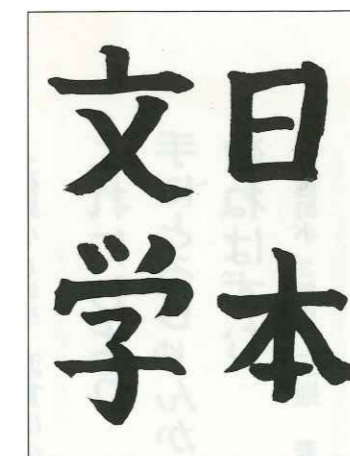 日本
文学